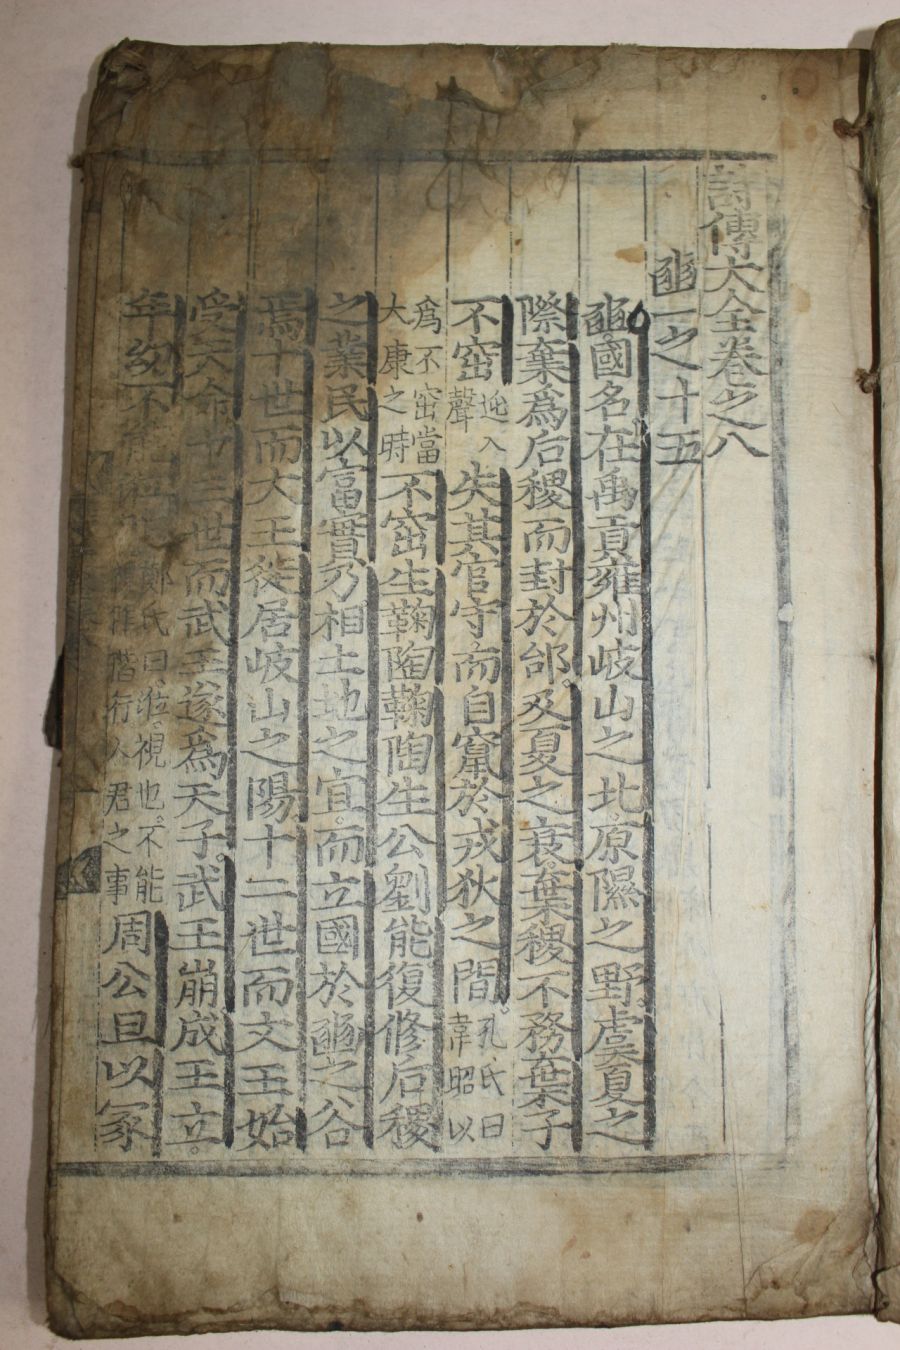 詩傳大全卷之八
豳一之十五
豳國名在禹貢雍州岐山之北原隰之野虞夏之
際棄爲后稷而封於邰及夏之衰棄稷不務棄子
不窋入聲失其官守而自竄於戎狄之間孔氏曰韋昭以
爲不窋當大康之時不窋生鞠陶鞠陶生公劉能復修后稷
之業民以富實乃相土地之宜而立國於豳之谷
焉十世而大王徙居岐山之陽十二世而文王始
受天命十三世而武王遂爲天子武王崩成王立
年幼不能鄭氏曰莅視也不能阼階行人君之事周公旦以冢